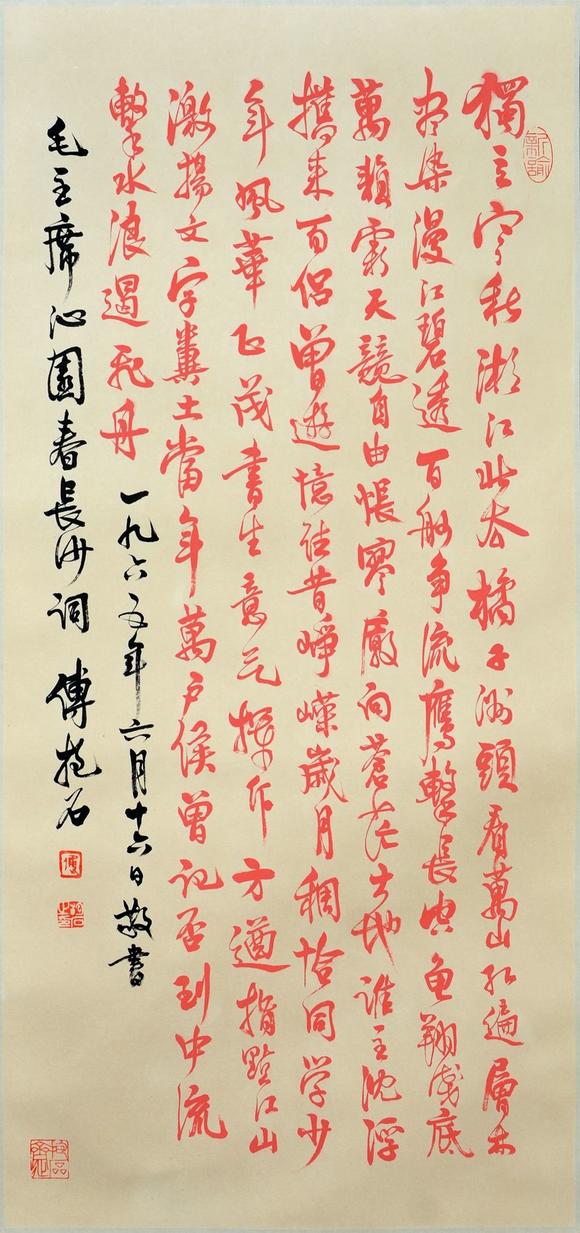 獨立寒秋湘江北去橘子洲頭看萬山紅遍層林
盡染漫江碧透百舸爭流鷹擊長空魚翔淺底
萬類霜天競自由悵寥廓問蒼茫大地誰主沈浮
攜來百侶曾遊憶往昔崢嶸歲月稠恰同學少
年風華正茂書生意氣揮斥方遒指點江山
激揚文字糞土當年萬戶侯曾記否到中流
擊水浪遏飛舟
一九六五年六月十六日敬書
毛主席沁園春長沙詞 傅抱石
傅